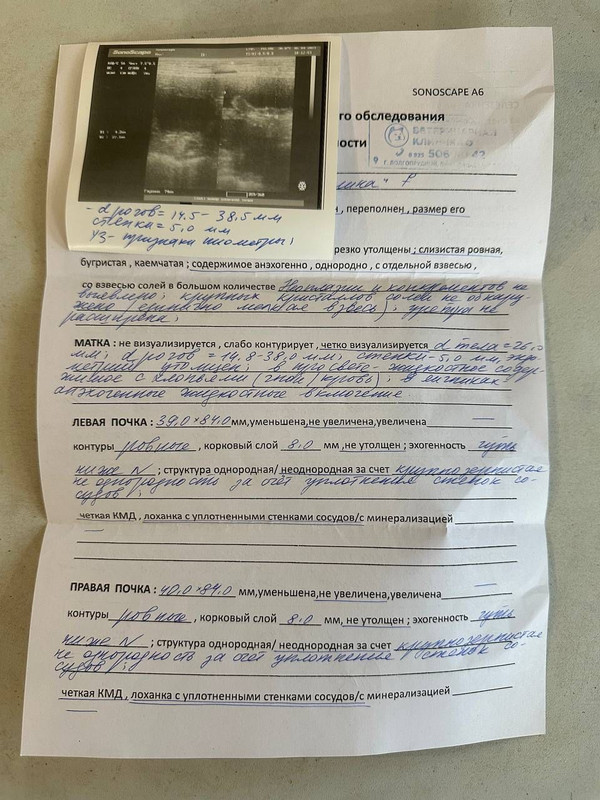 SonoScape
SONOSCAPE A6
го обследования
ности
ВЕТЕРИНАРНАЯ
КЛИНИКА
506
- d рогов = 14,5 - 38,5 мм
стенки = 5,0 мм
УЗ - признаки пиометры;
, переполнен , размер его
резко утолщены ; слизистая ровная,
бугристая , каемчатая ; содержимое анэхогенно , однородно , с отдельной взвесью ,
со взвесью солей в большом количестве Неоплазии и конкрементов не
выявлено; крупных кристаллов солей не обнару-
жено (единично мелкая взвесь); уретра не
расширена;
МАТКА : не визуализируется , слабо контурирует , четко визуализируется d тела = 26,0
мм; d рогов = 14,8-38,0 мм; стенки - 5,0 мм, эндо-
метрий утолщен; в просвете - жидкостное содер-
жимое с хлопьями (гной/кровь); в яичниках -
анэхогенные жидкостные включения.
ЛЕВАЯ ПОЧКА : 39,0 × 84,0 мм,уменьшена,не увеличена,увеличена
контуры ровные , корковый слой 8,0 мм ,не утолщен ; эхогенность чуть
ниже N ; структура однородная/ неоднородная за счет крупнозернистая
неоднородность за счет уплотнения стенок со-
судов ;
четкая КМД , лоханка с уплотненными стенками сосудов/с минерализацией
ПРАВАЯ ПОЧКА : 40,0 × 84,0 мм,уменьшена,не увеличена,увеличена
контуры ровные , корковый слой 8,0 мм, не утолщен ; эхогенность чуть
ниже N ; структура однородная/ неоднородная за счет крупнозернистая
неоднородность за счет уплотнения стенок со-
судов ;
четкая КМД , лоханка с уплотненными стенками сосудов/с минерализацией